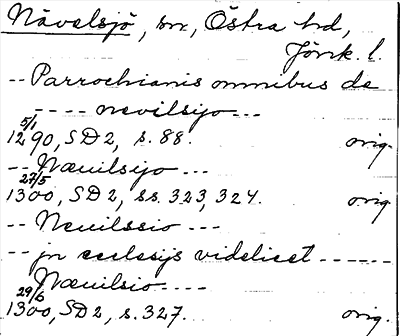 Nävelsjö, sn, Östra hd,
Jönk. l.
-- Parrochianis omnibus de
---- nevilsijo ---
5/1
1290, SD2, s. 88. orig.
-- Næuilsijo ---
27/5
1300, SD2, ss. 323, 324. orig
-- Neuilssio ---
-- jn ecclesijs videlicet ------
Næuilsio ----
29/6
1300, SD2, s. 327. orig.